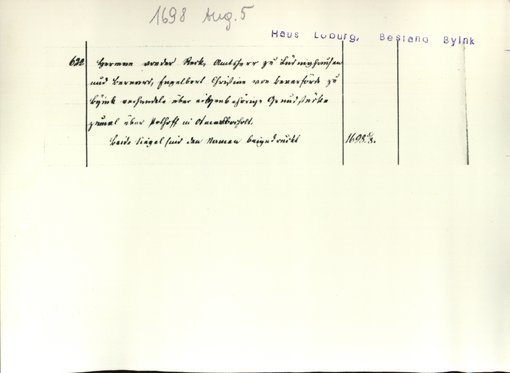 1698 Aug. 5
Haus Loburg, Bestand Byink
622 Herman von der Reck, Amtsherr zu Lüdinghausen
und Bernard, Engelbert Christine von Beverförde zu
Byink verhandeln über eigenbehörige Grundstücke
zumal über Polhoff in Ottmarsbocholt.
Beide Siegel sind den Namen beigedruckt
1698 5/8.